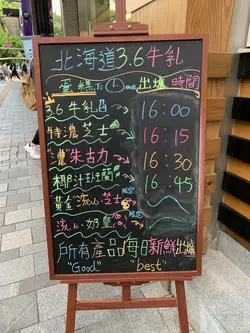 北海道3.6牛乳
蛋糕 Time 出爐時間
3.6牛乳 16:00
特濃芝士 16:15
"濃"朱古力 16:30
椰汁班蘭 限定 16:45
黃金流心芝士 限定
流心奶皇
所有產品每日新鮮出爐
"Good" "best"